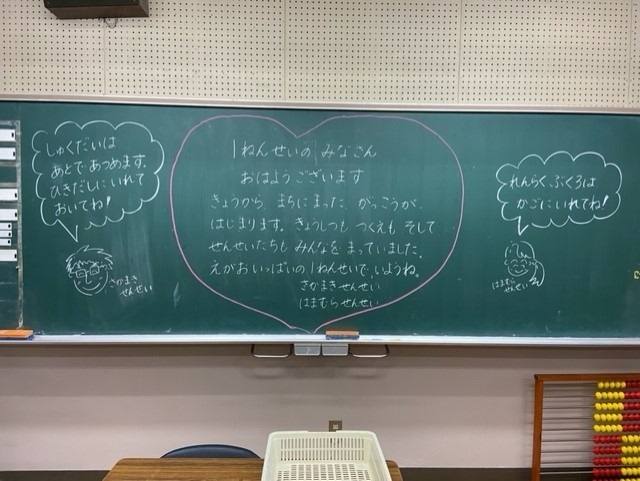 しゅくだいは
あとであつめます。
ひきだしにいれて
おいてね！
さかまき
せんせい
1ねんせいの みなさん
おはようございます
きょうから、まちにまった がっこうが、
はじまります。きょうしつも つくえも そして
せんせいたちも みんなを まっていました。
えがおいっぱいの 1ねんせいで、いようね。
さかまきせんせい
はまむらせんせい
れんらくぶくろは
かごにいれてね！
はまむら
せんせい